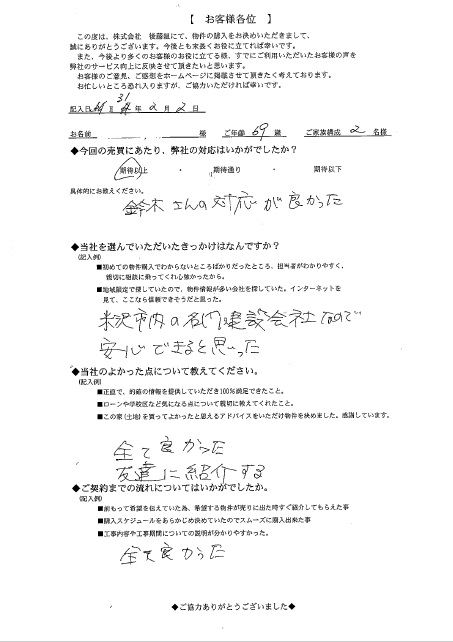 【 お客様各位 】
この度は、株式会社 後藤組にて、物件の購入をお決めいただきまして、
誠にありがとうございます。今後とも末長くお役に立てれば幸いです。
また、今後より多くのお客様のお役に立てる様、すでにご利用いただいたお客様の声を
弊社のサービス向上に反映させて頂きたいと思います。
お客様のご意見、ご感想をホームページに掲載させて頂きたく考えております。
お忙しいところ恐れ入りますが、ご協力いただければ幸いです。
記入日 31 年 2 月 2 日
お名前 様 ご年齢 69 歳 ご家族構成 2 名様
◆今回の売買にあたり、弊社の対応はいかがでしたか？
期待以上 ・ 期待通り ・ 期待以下
具体的にお教えください。
鈴木さんの対応が良かった
◆当社を選んでいただいたきっかけはなんですか？
(記入例)
■初めての物件購入でわからないところばかりだったところ、担当者がわかりやすく、
親切に相談に乗ってくれ心強かったから。
■地域限定で探していたので、物件情報が多い会社を探していた。インターネットを
見て、ここなら信頼できそうだと思った。
米沢市内の名門建設会社なので
安心できると思った
◆当社のよかった点について教えてください。
(記入例)
■正直で、的確の情報を提供していただき100％満足できたこと。
■ローンや学校区など気になる点について親切に教えてくれたこと。
■この家（土地）を買ってよかったと思えるアドバイスをいただけ物件を決めました。感謝しています。
全て良かった
友達に紹介する
◆ご契約までの流れについてはいかがでしたか。
(記入例)
■前もって希望を伝えていた為、希望する物件が売りに出た時すぐ紹介してもらえた事
■購入スケジュールをあらかじめ決めていたのでスムーズに購入出来た事
■工事内容や工事期間についての説明が分かりやすかった。
全て良かった
◆ご協力ありがとうございました◆